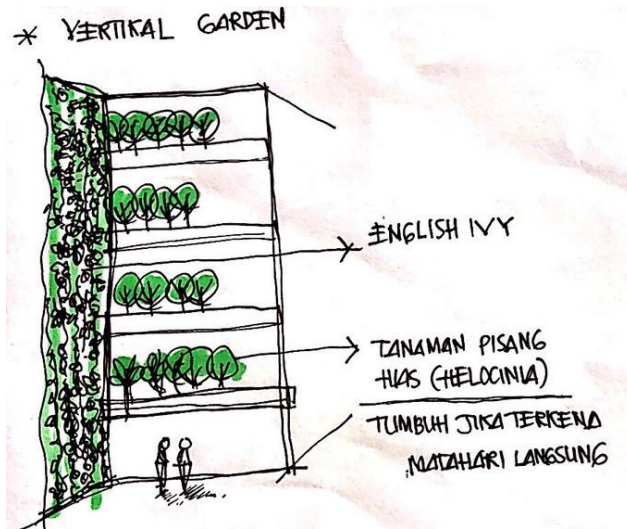 * VERTIKAL GARDEN
ENGLISH IVY
TANAMAN PISANG
HIAS (HELOCINIA)
TUMBUH JIKA TERKENA
MATAHARI LANGSUNG